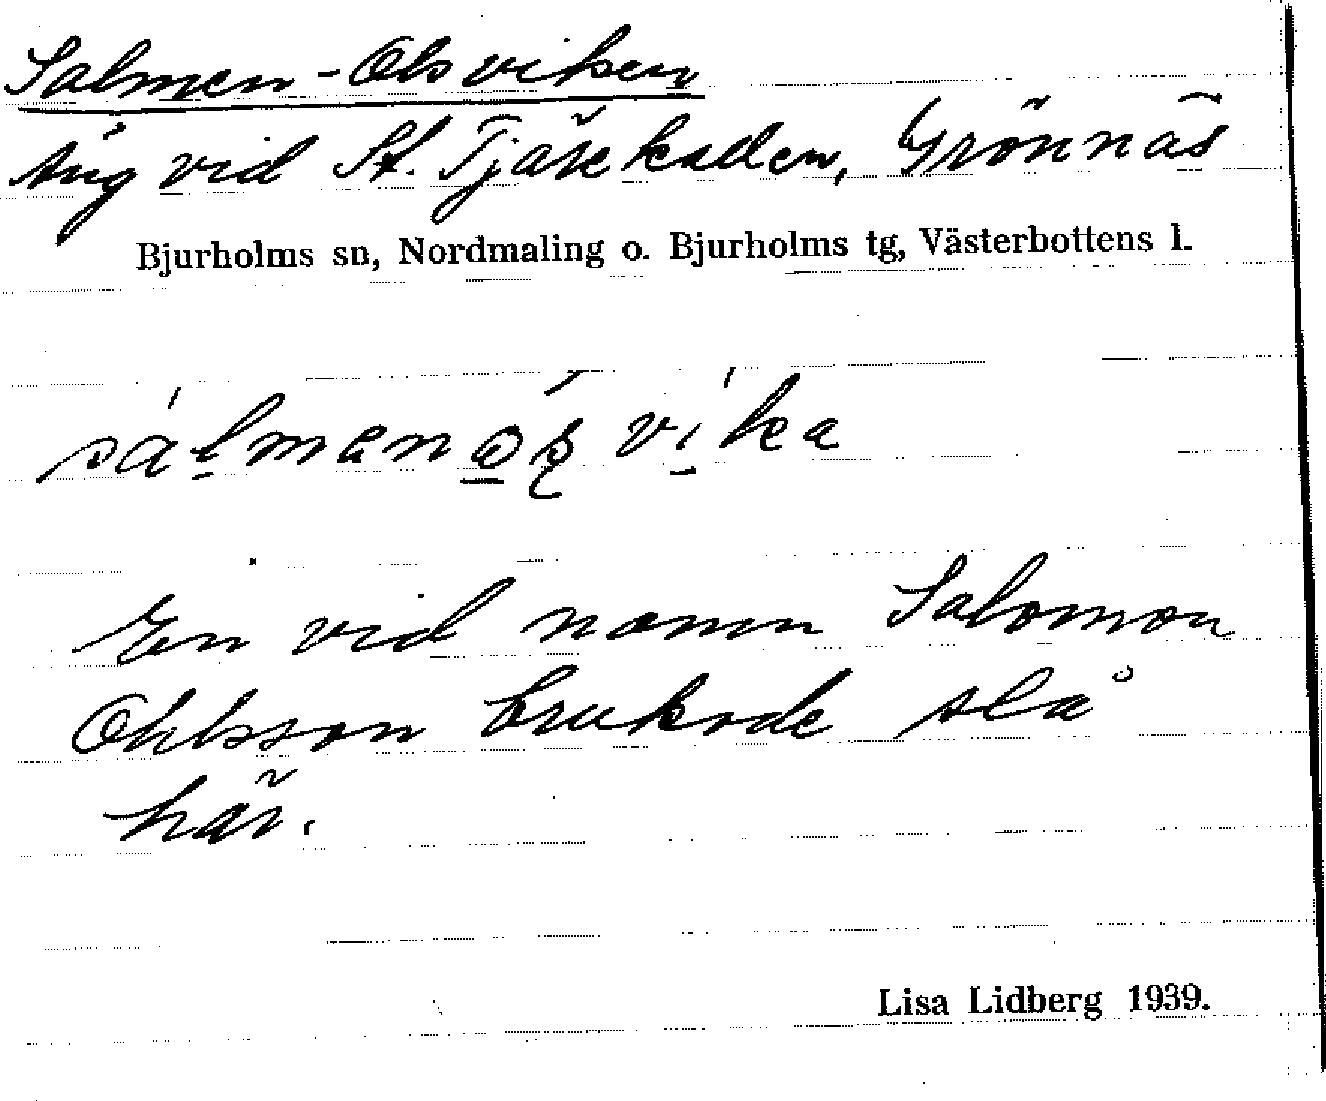 Salmen-Olsviken
Äng vid St. Tjärkadden, Grönnäs
Bjurholms sn, Nordmaling o. Bjurholms tg, Västerbottens l.
En vid namn Salomon
Ohlsson brukade slå
här.
Lisa Lidberg 1939.